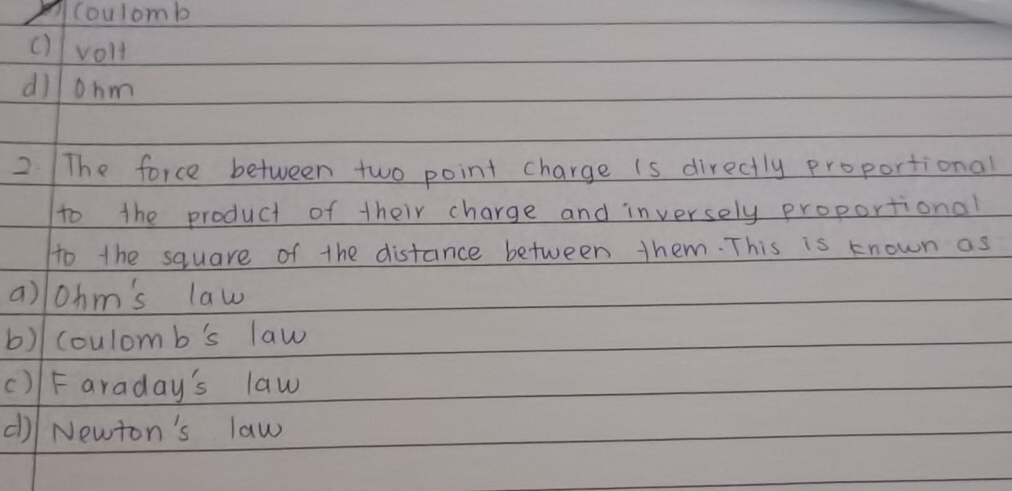 Coulomb
c) volt
d) Ohm
2. The force between two point charge is directly proportional
to the product of their charge and inversely proportional
to the square of the distance between them. This is known as
a) Ohm's law
b) Coulomb's law
c) Faraday's law
d) Newton's law